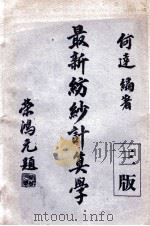 何達編著
最新紡紗計算學
三版
榮鴻元題
www.toutu51.com